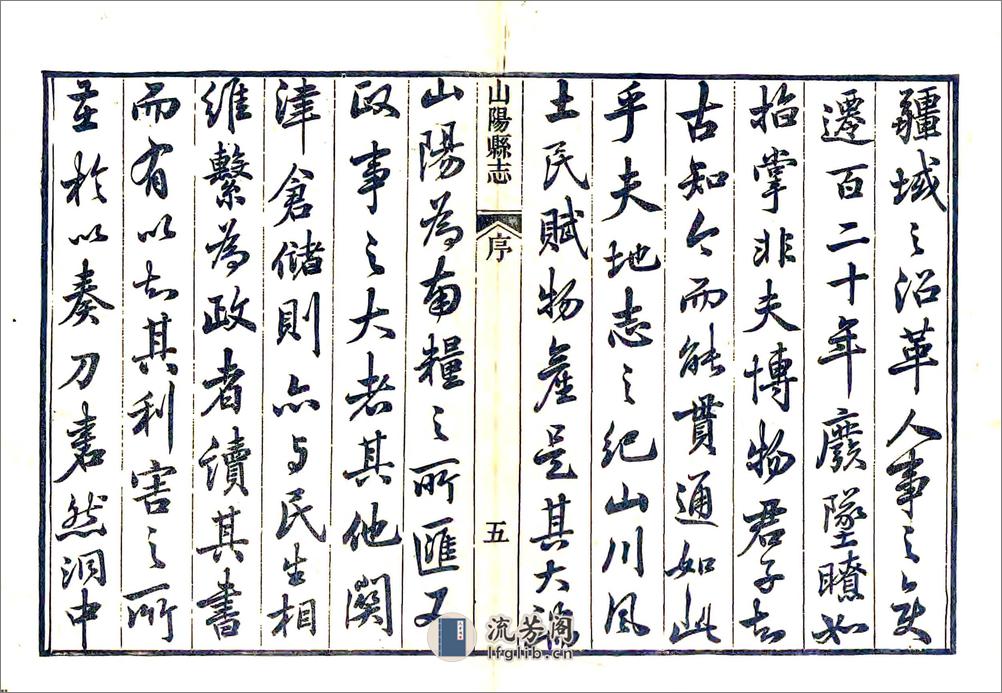 疆域之沿革人事之變
遷百二十年廢墜瞭如
指掌非夫博物君子知
古知今而能貫通如此
乎夫地志之紀山川風
土民賦物產是其大
山陽縣志
序
五
山陽為南糧之所匯又
政事之大者其他關
津倉儲則亦与民生相
維繫為政者讀其書
而有以知其利害之所
在於以奏刀砉然洞中
流芳阁
lfglib.cn